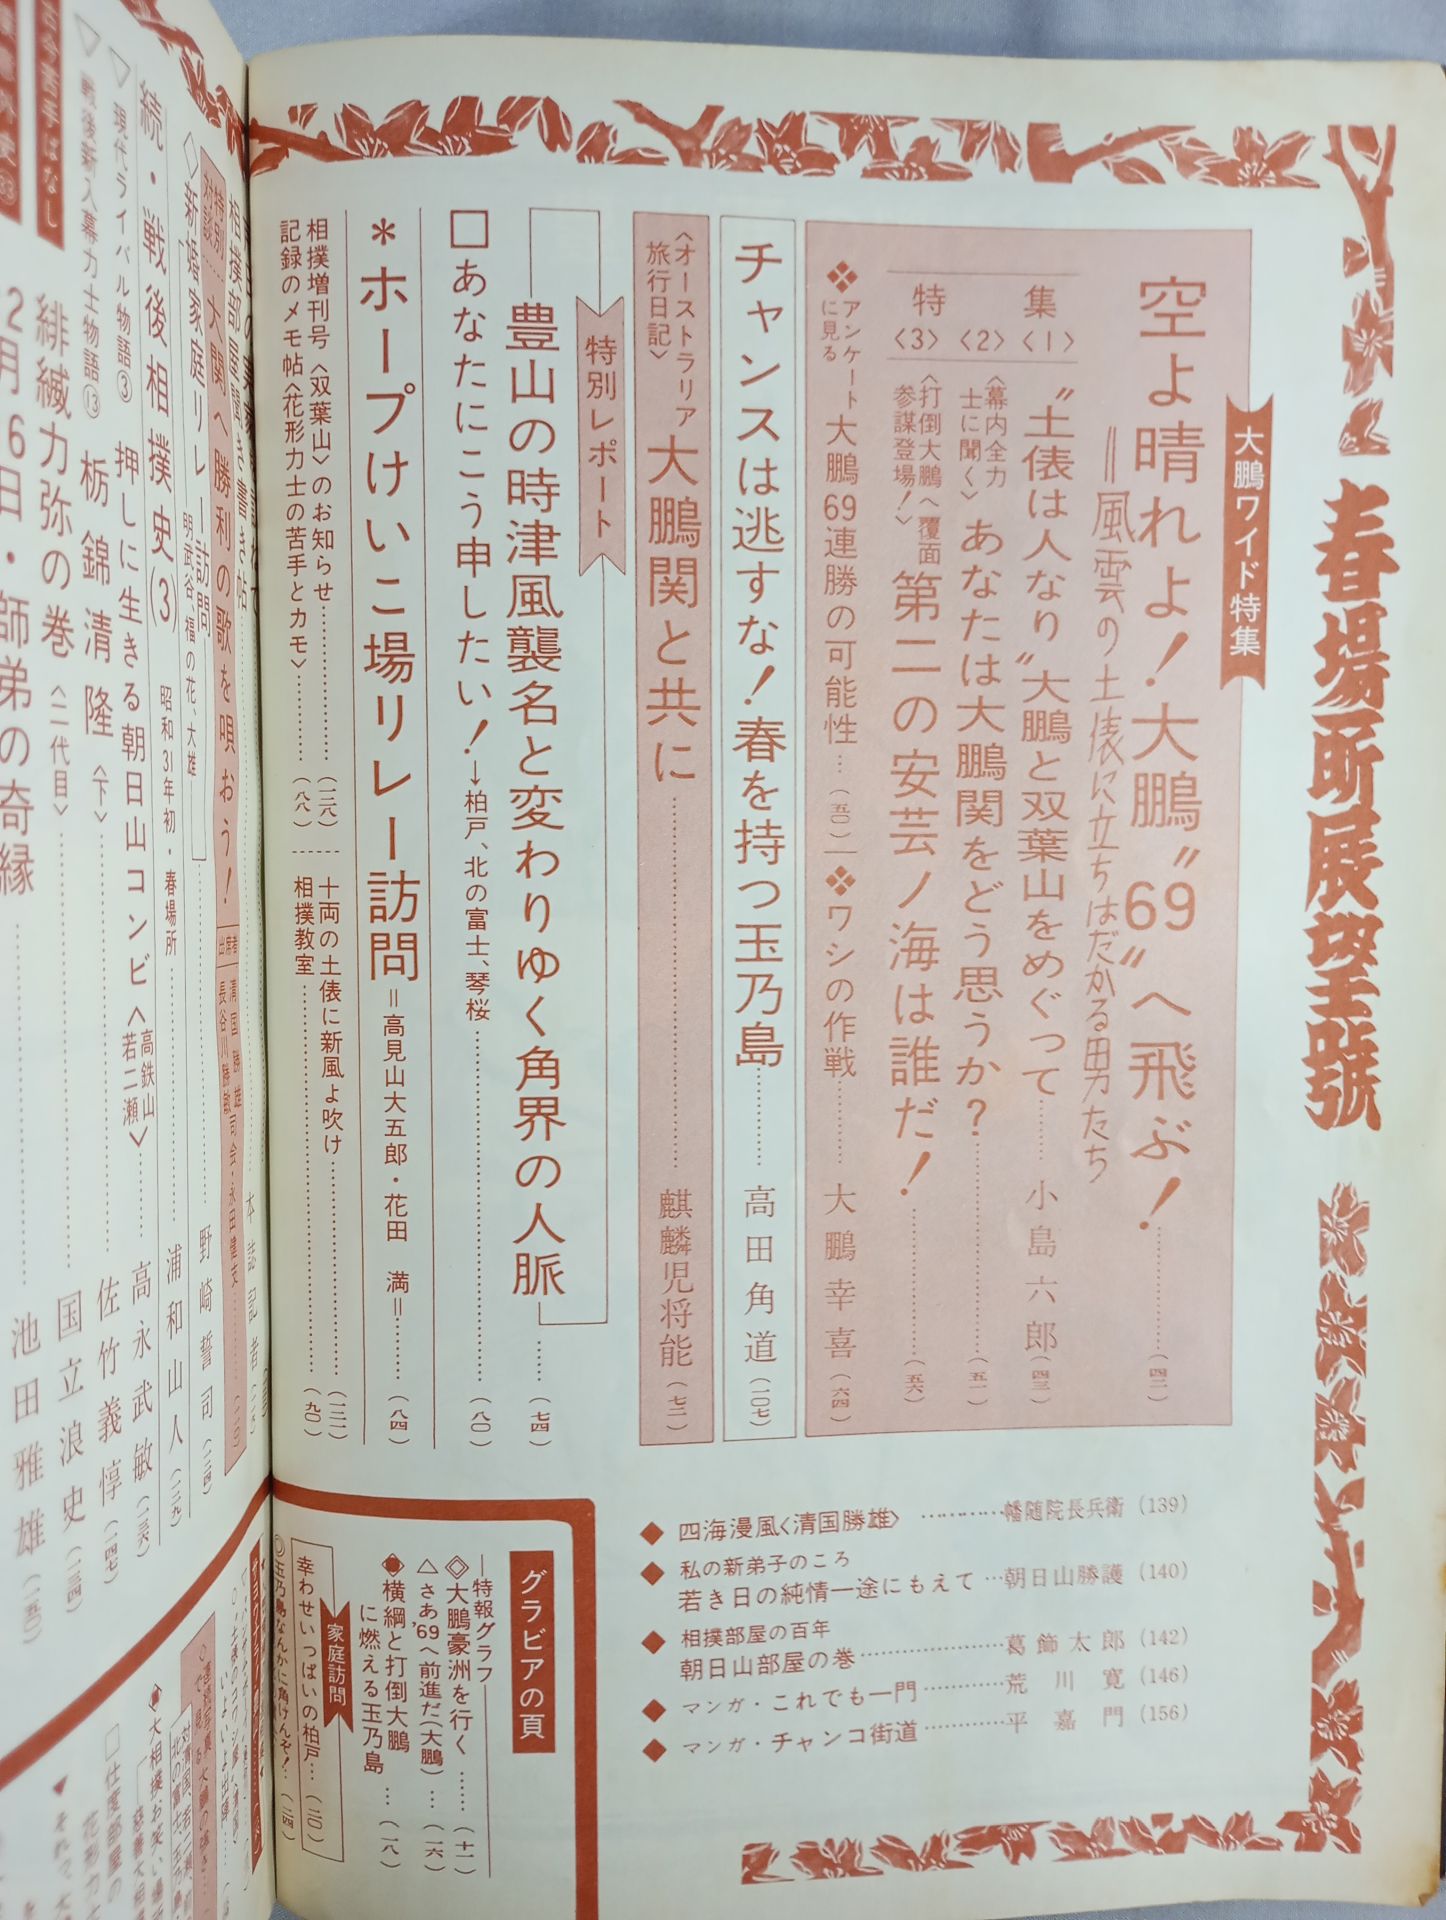 春場所展望号
大鵬ワイド特集
空よ晴れよ!大鵬〝69〟へ飛ぶ!……(四二)
=風雲の土俵に立ちはだかる男たち
特集
〈1〉〝土俵は人なり〟大鵬と双葉山をめぐって……小島六郎(四三)
〈2〉〈幕内全力士に聞く〉あなたは大鵬関をどう思うか?……(五一)
〈3〉〈打倒大鵬へ覆面参謀登場!〉第二の安芸ノ海は誰だ!……(五六)
❖アンケートに見る 大鵬69連勝の可能性…(五〇)
❖ワシの作戦……大鵬幸喜(六四)
チャンスは逃すな!春を持つ玉乃島……高田角道(一〇七)
〈オーストラリア旅行日記〉大鵬関と共に……麒麟児将能(七二)
特別レポート
豊山の時津風襲名と変わりゆく角界の人脈……(七四)
□あなたにこう申したい!→柏戸、北の富士、琴桜……(八〇)
*ホープけいこ場リレー訪問=高見山大五郎・花田 満=……(八四)
相撲増刊号〈双葉山〉のお知らせ……(一三八)
記録のメモ帖〈花形力士の苦手とカモ〉……(八八)
十両の土俵に新風よ吹け……(一三一)
相撲教室……(九〇)
◆四海漫風〈清国勝雄〉……幡随院長兵衛(139)
◆私の新弟子のころ
若き日の純情一途にもえて…朝日山勝護(140)
◆相撲部屋の百年
朝日山部屋の巻……葛飾太郎(142)
◆マンガ・これでも一門……荒川寛(146)
◆マンガ・チャンコ街道……平嘉門(156)
グラビアの頁
特報グラフ
◇大鵬豪洲を行く……(十一)
△さあ'69へ前進だ(大鵬)…(一六)
◆横綱と打倒大鵬に燃える玉乃島…(一八)
家庭訪問
幸わせいっぱいの柏戸…(二〇)
玉乃島なんかに負けんぞ!…(二四)
相撲部屋聞き書き帖……本誌記者
特別対談 大関へ勝利の歌を唄おう!
出席者 清国勝雄 長谷川勝敏 司会・永田健支
◇新婚家庭リレー訪問
明武谷、福の花、大雄……野崎誓司
続・戦後相撲史(3) 昭和31年初・春場所……浦和山人(一二九)
▽現代ライバル物語③ 押しに生きる朝日山コンビ〈高鉄山 若二瀬〉……高永武敏(一三六)
▽戦後新入幕力士物語⑬ 栃錦清隆〈下〉……佐竹義惇(一四七)
古今苦手ばなし 緋縅力弥の巻〈二代目〉……国立浪史(一三四)
2月6日・師弟の奇縁……池田雅雄(一五〇)